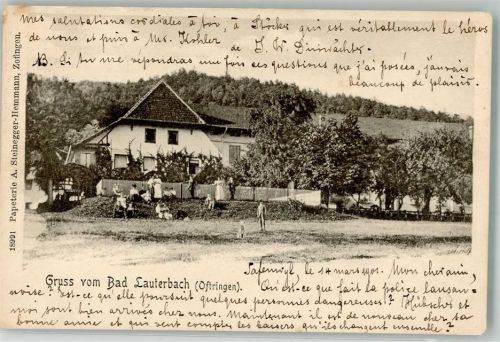 mes salutations cordiales à toi, à Stöcker qui est véritablement le héros
de nous et puis à Mr. Kohler de
B. Si tu me repondras une fois ces questions que j'ai posées, j'aurais
beaucoup de plaisir.
18991 Papeterie A. Steinegger-Hemmann, Zofingen.
Safenwyl, le 14 mars 1901. Mon cher ami,
Gruss vom Bad Lauterbach (Oftringen).
Qu'est-ce que fait la police lausan-
noise? est-ce qu'elle poursuit quelques personnes dangereuses? Hubscher et
moi sont bien arrivés chez nous. Maintenant il est de nouveau cher sa
bonne amie et qui veut compter les baisers qu'ils échangent ensemble?